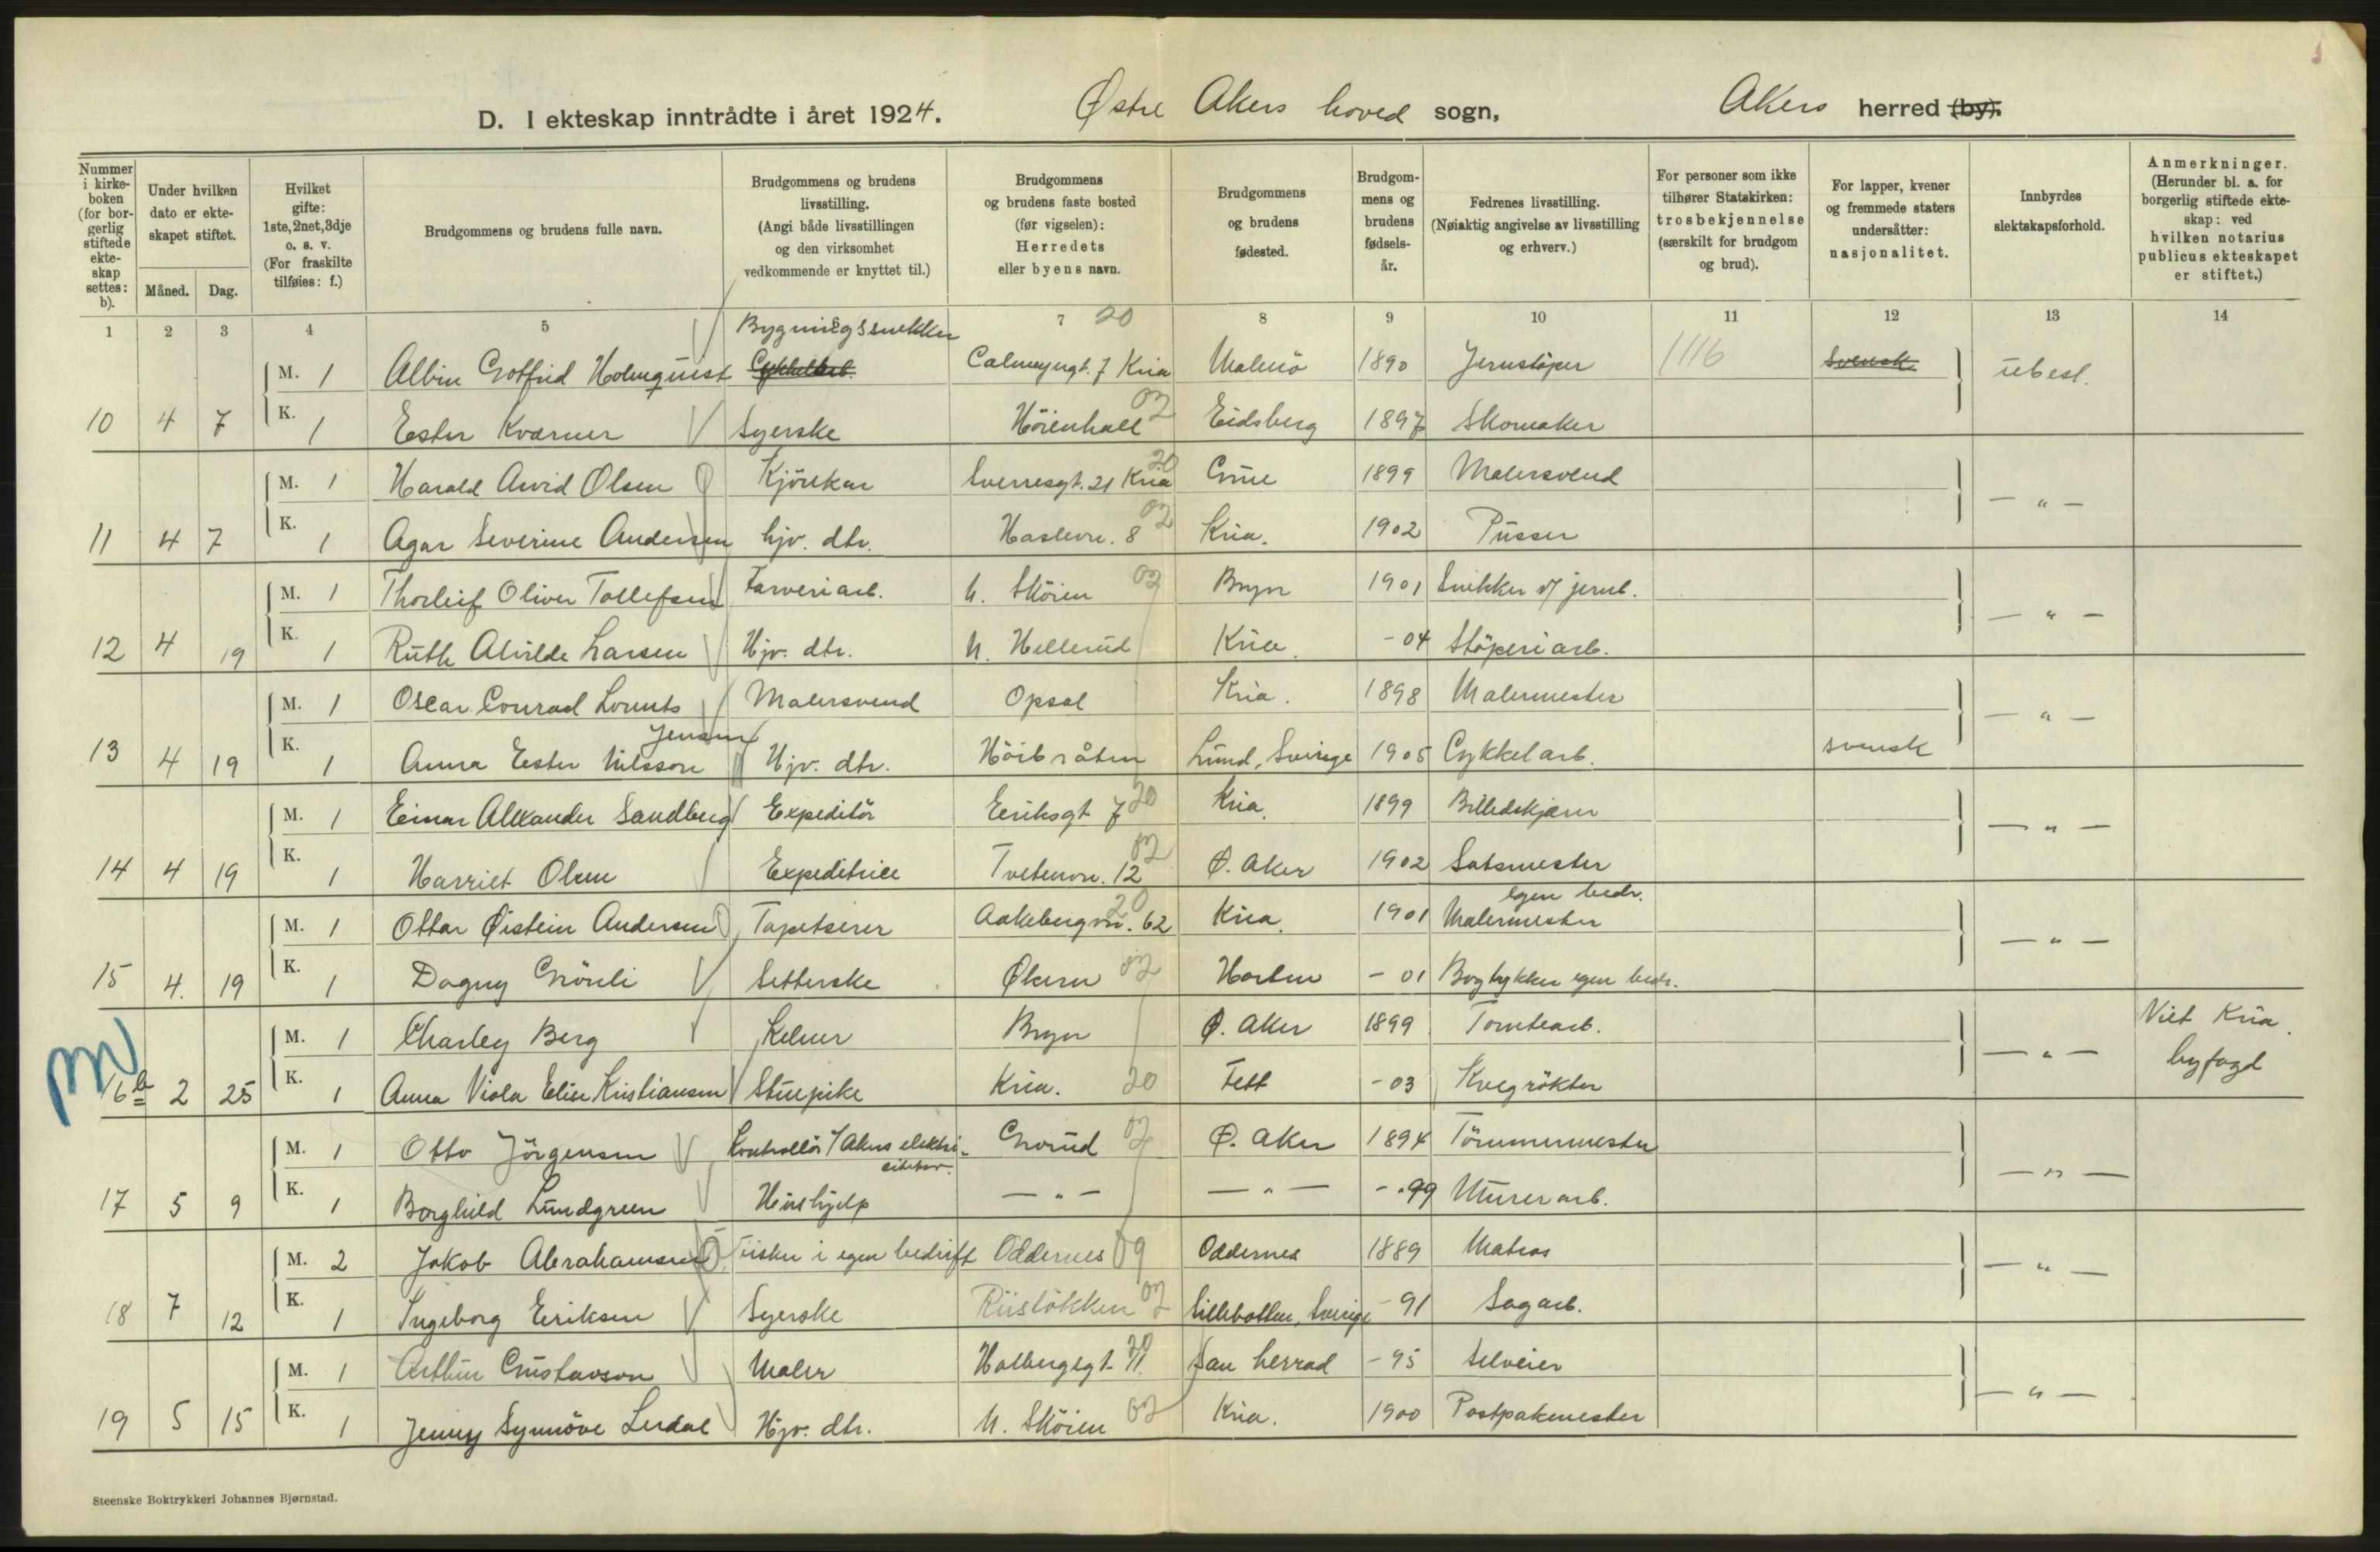 D. I ekteskap inntrådte i året 1924. Østre Akers hoved sogn, Akers herred (by).
Nummer i kirke-boken (for bor-gerlig stiftede ekte-skap settes: b).
Under hvilken dato er ekte-skapet stiftet.
Måned. Dag.
Hvilket gifte: 1ste, 2net, 3dje o. s. v. (For fraskilte tilføies: f.)
Brudgommens og brudens fulle navn.
Brudgommens og brudens livsstilling. (Angi både livsstillingen og den virksomhet vedkommende er knyttet til.)
Brudgommens og brudens faste bosted (før vigselen): Herredets eller byens navn.
Brudgommens og brudens fødested.
Brudgom-mens og brudens fødsels-år.
Fedrenes livsstilling. (Nøiaktig angivelse av livsstilling og erhverv.)
For personer som ikke tilhører Statskirken: trosbekjennelse (særskilt for brudgom og brud).
For lapper, kvener og fremmede staters undersåtter: nasjonalitet.
Innbyrdes slektskapsforhold.
Anmerkninger. (Herunder bl. a. for borgerlig stiftede ekte-skap: ved hvilken notarius publicus ekteskapet er stiftet.)
1 2 3 4 5 7 20 8 9 10 11 12 13 14
Bygningssnekker
M. 1 Albin Gotfrid Holmquist Cykkelarb. Calmeyergt. 7 Kria Malmö 1890 Jernstøper 1116 Svensk ubesl.
10 4 7 K. 1 Ester Kværner Syerske Höienhall 02 Eidsberg 1897 Skomaker
M. 1 Harald Arvid Olsen Kjörekar Sverresgt. 21 Kria 20 Grue 1899 Malersvend
11 4 7 K. 1 Agar Severine Andersen hjv. dtr. Haslevn. 8 02 Kria. 1902 Pusser — " —
M. 1 Thorleif Oliver Tollefsen Farveriarb. N. Sköien 02 Bryn 1901 Snekker v/ jernb.
12 4 19 K. 1 Ruth Alvilde Larsen Hjv. dtr. N. Hellerud Kria. -04 Stöperiarb. — " —
M. 1 Oscar Conrad Lorents Malersvend Opsal Kria. 1898 Malermester
Jensen
13 4 19 K. 1 Anna Ester Nilsson Hjv. dtr. Höibråten Lund, Sverige 1905 Cykkelarb. svensk — " —
M. 1 Einar Alexander Sandberg Expeditör Eeriksgt 7 20 Kria. 1899 Billedskjærer
14 4 19 K. 1 Harriet Olsen Expeditrice Tvetenvn. 12 02 Ø. Aker 1902 Satsmester — " —
egen bedr.
M. 1 Ottar Øistein Andersen Tapetserer Aakebergvn. 62 20 Kria. 1901 Malermester
15 4. 19 K. 1 Dagny Grönli Setterske Økern 02 Horten - 01 Bogtykker egen bedr. — " —
M. 1 Charley Berg Kelner Bryn Ø. Aker 1899 Tomtearb. Viet Kria.
16 b 2 25 K. 1 Anna Viola Elise Kristiansen Stuepike Kria. 20 Fett -03 Kvegrökter — " — byfogd
M. 1 Otto Jörgensen Kontrollör / Akers elektri- Grorud 02 Ø. Aker 1894 Tömmermester
citetsv.
17 5 9 K. 1 Borghild Lundgreen Hushjelp — " — — " — - 99 Murerarb. — " —
M. 2 Jakob Abrahamsen Fisker i egen bedrift Oddernes 09 Oddernes 1889 Matros
18 7 12 K. 1 Ingeborg Eriksen Syerske Riislökken 02 Lillebotten, Sverige - 91 Sagarb. — " —
M. 1 Arthur Gustavson Maler Holbergsgt. 11 20 Sau herrad - 95 Selveier
19 5 15 K. 1 Jenny Synnöve Lerdal Hjv. dtr. N. Sköien 02 Kria. 1900 Postpakmester — " —
Steenske Boktrykkeri Johannes Bjørnstad.